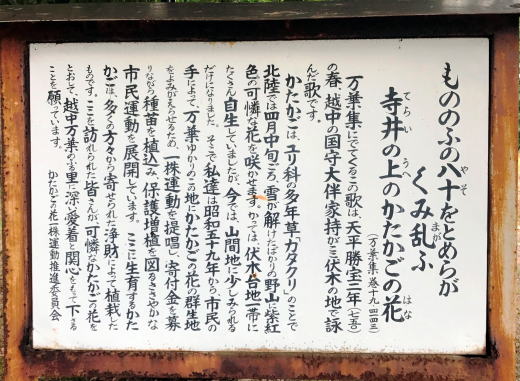 もののふの八十をとめらが
やそ
くみ乱ふ
まが
寺井の上のかたかごの花
てらい うへ はな
(万葉集 巻十九 四一四三)
万葉集にでてくるこの歌は、天平勝宝二年(七五〇)
の春、越中の国守大伴家持が三伏木の地で詠
んだ歌です。
かたかごは、ユリ科の多年草「カタクリ」のことで
北陸では四月中旬ごろ、雪が解けたばかりの野山に紫紅
色の可憐な花を咲かせます。かつては、伏木台地一帯に
たくさん自生していましたが、今では、山間地に少しみられる
だけになりました。そこで私達は昭和五十九年から、市民の
手によって、万葉ゆかりのこの地にかたかごの花の群生地
をよみがえらせるため、一株運動を提唱し、寄付金を募
りながら種苗を植込み、保護増植を図るささやかな
市民運動を展開しています。ここに生育するかた
かごは、多くの方々から寄せられた浄財によって植栽した
ものです。ここを訪れられた皆さんが、可憐なかたかごの花を
とおして、越中万葉の古里に深い愛着と関心をもって下さる
ことを願っています。
かたかごの花一株運動推進委員会